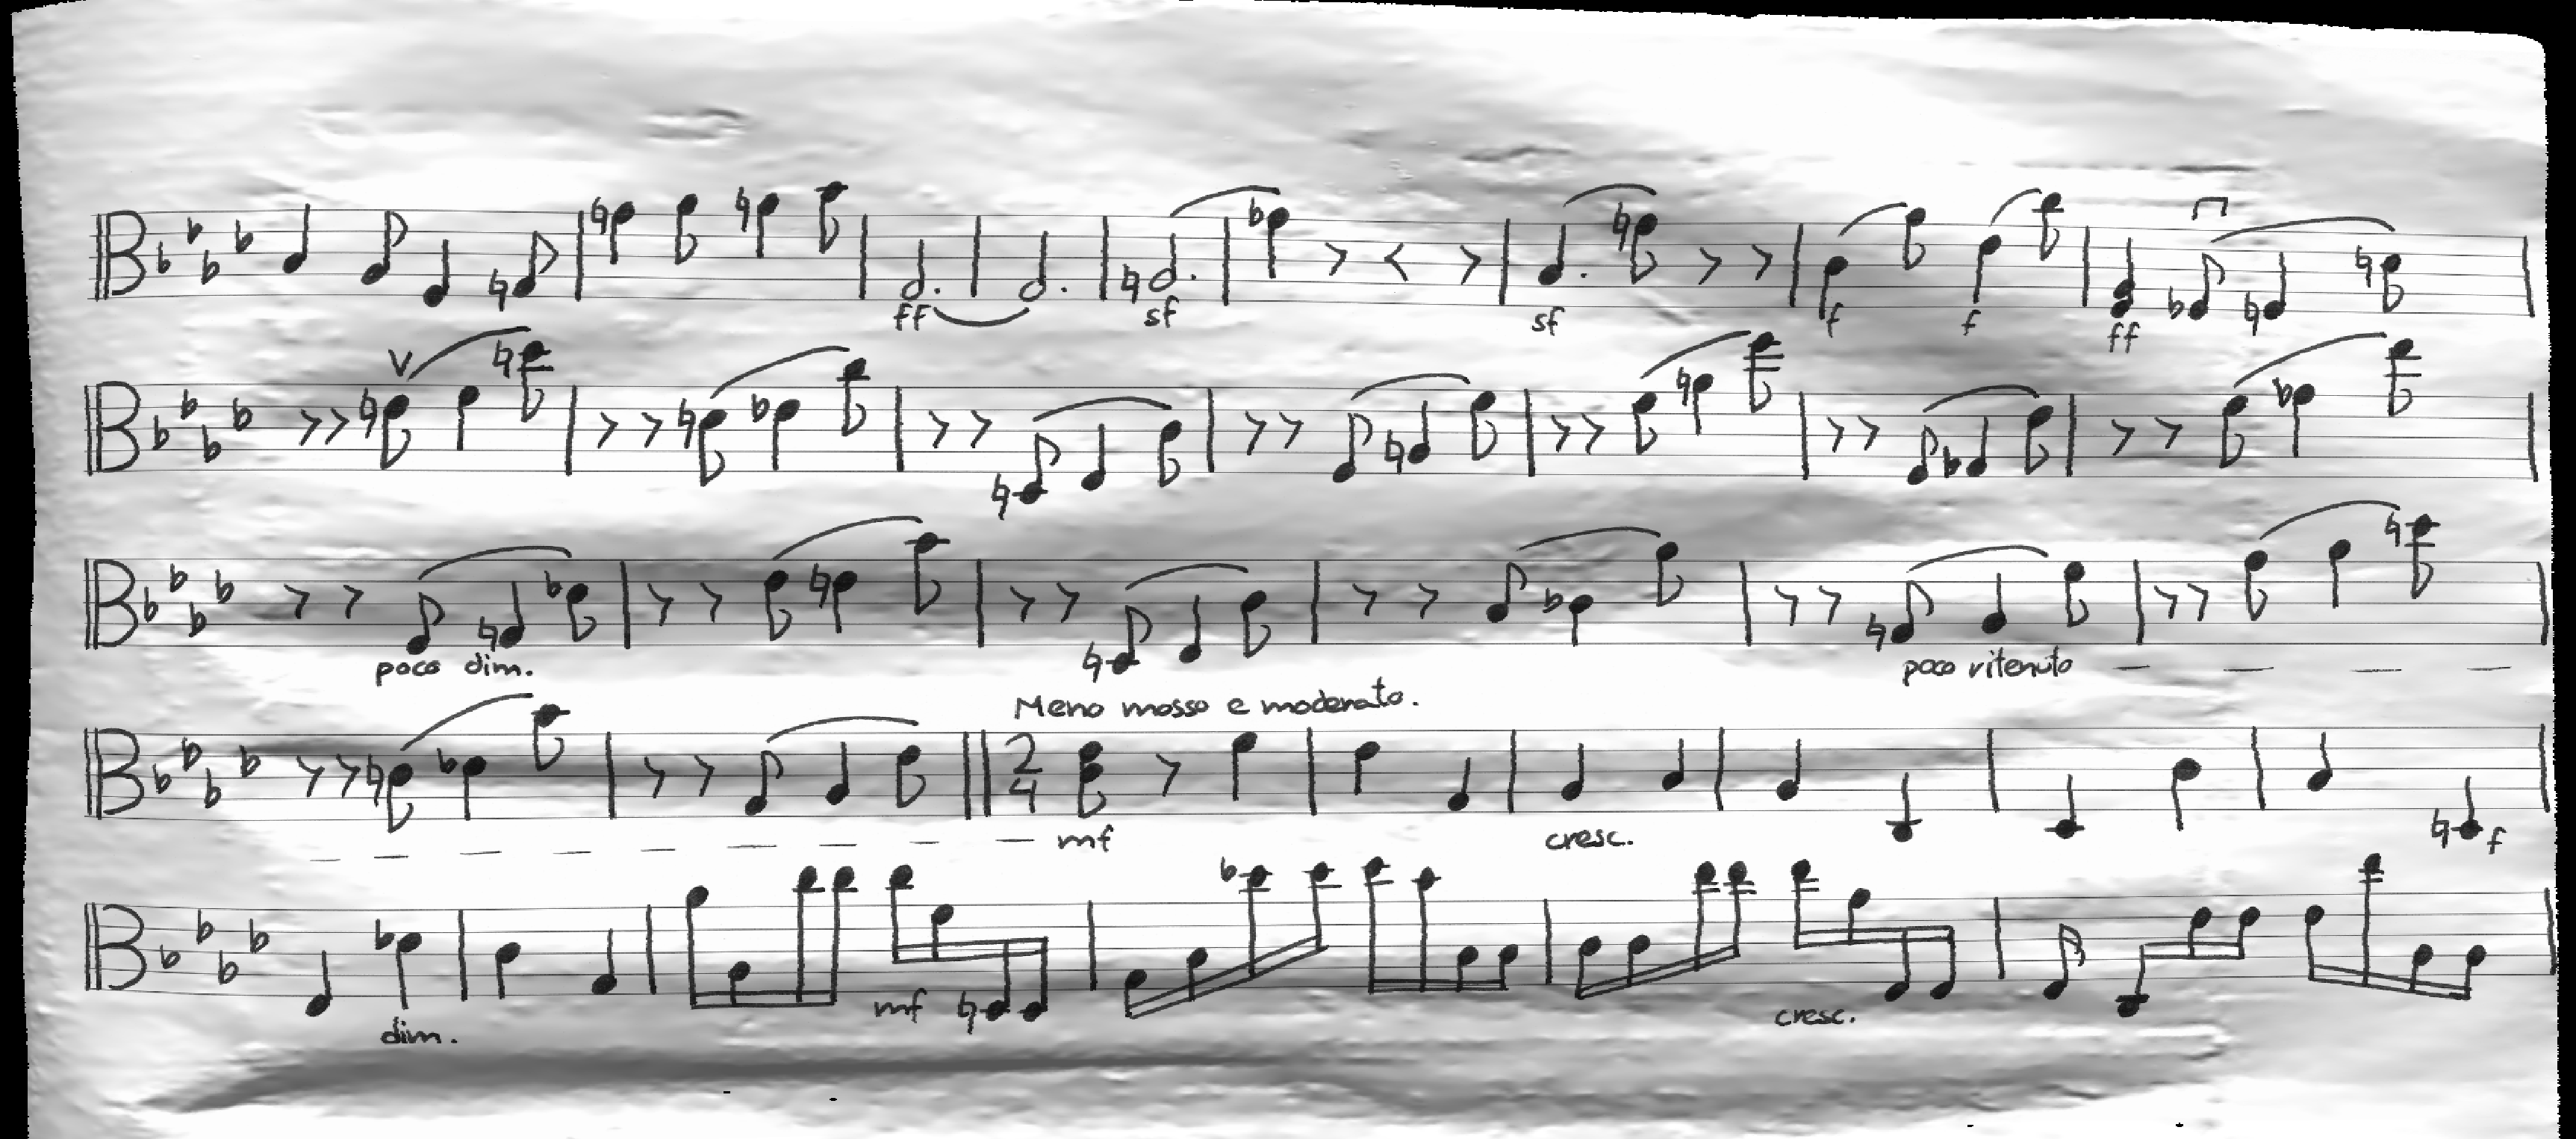 ff sf sf f f ff
poco dim. poco ritenuto
Meno mosso e moderato.
2
4
mf cresc. f
mf cresc.
dim.